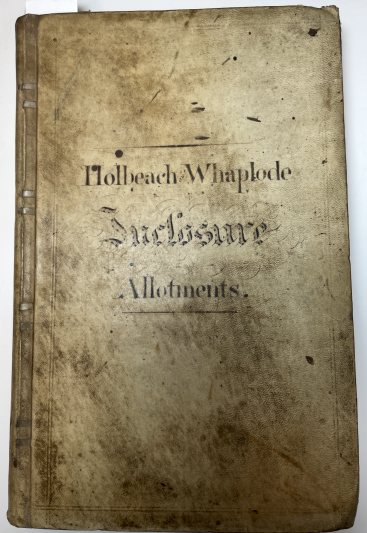 Holbeach & Whaplode
Inclosure
Allotments.